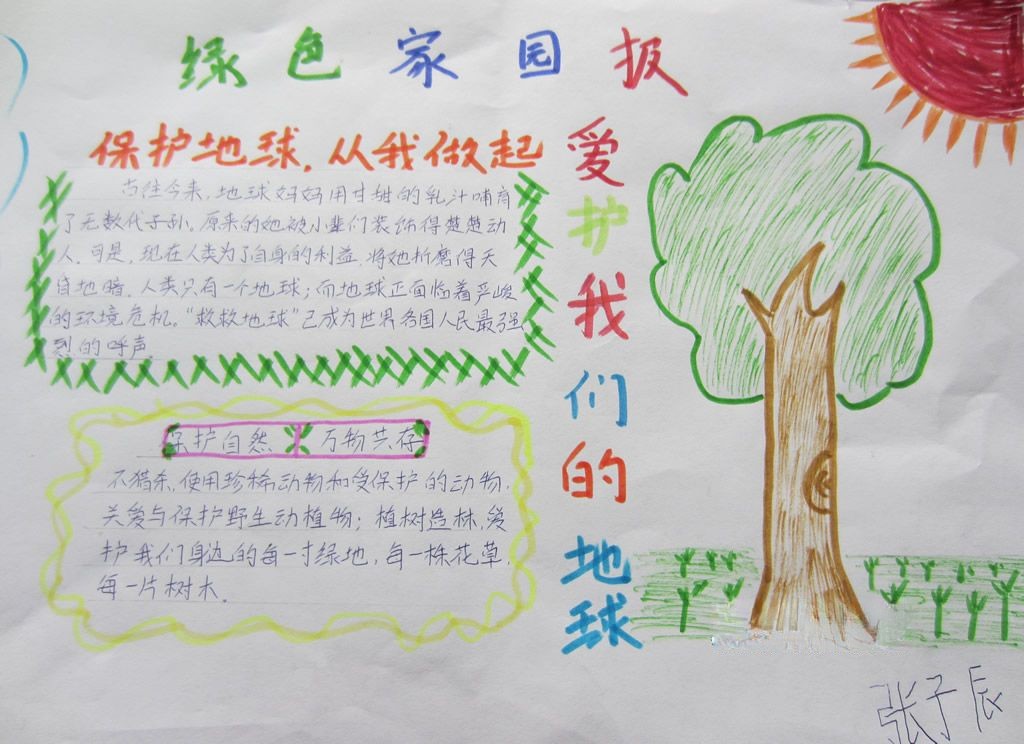 绿色家园报
保护地球，从我做起
古往今来，地球妈妈用甘甜的乳汁哺育
了无数代子孙。原来的她被小辈们装饰得楚楚动
人。可是，现在人类为了自身的利益，将她折磨得天
昏地暗。人类只有一个地球；而地球正面临着严峻
的环境危机。“救救地球”已成为世界各国人民最强
烈的呼声。
保护自然 万物共存
不猎杀、使用珍稀动物和受保护的动物，
关爱与保护野生动植物；植树造林，爱
护我们身边的每一寸绿地，每一株花草，
每一片树木。
爱护我们的地球
张子辰